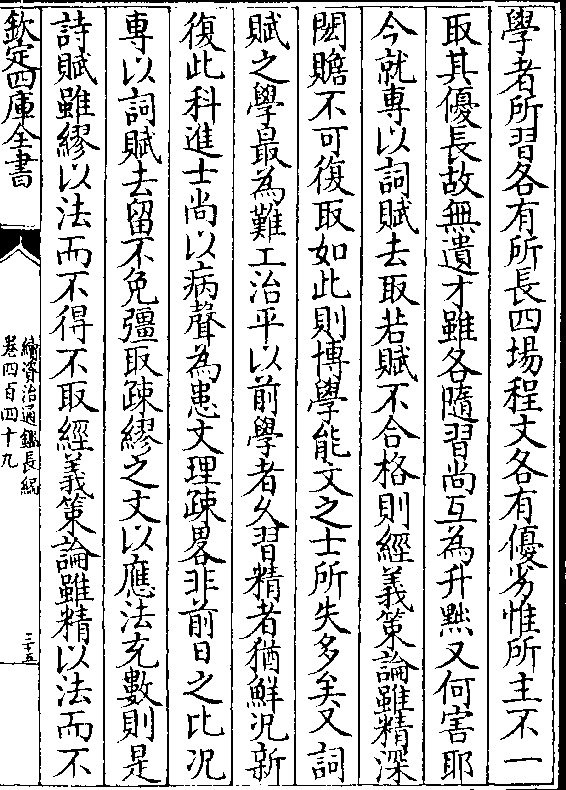 學者所習各有所長四場程文各有優劣惟所主不一
取其優長故無遺才雖各隨習尚互為升黜又何害耶
今就專以詞賦去取若賦不合格則經義策論雖精深
閎贍不可復取如此則博學能文之士所失多矣又詞
賦之學最為難工治平以前學者久習精者猶鮮況新
復此科進士尚以病聲為患文理疎畧非前日之比况
專以詞賦去留不免彊取疎繆之文以應法充數則是
詩賦雖繆以法而不得不取經義策論雖精以法而不
欽定四庫全書
續資治通鑑長編
卷四百四十九
三十五